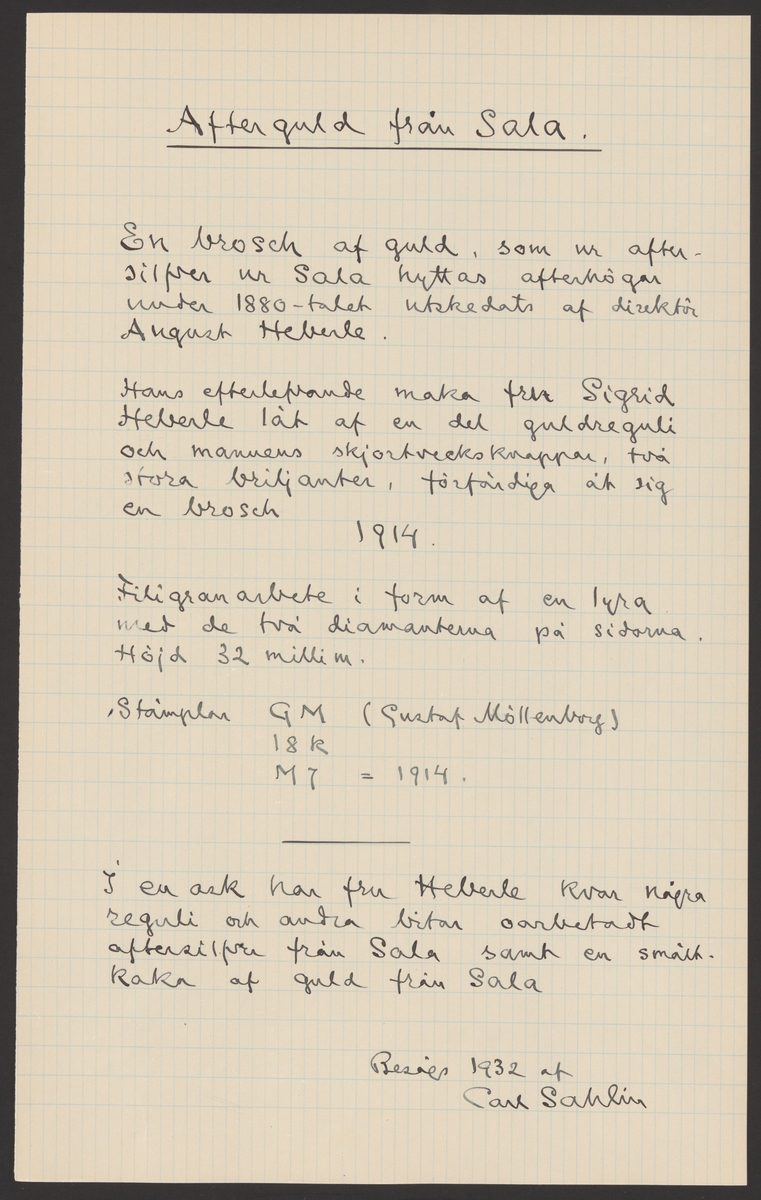 Afterguld från Sala.
En brosch af guld, som ur after-
silfver ur Sala hyttas afterhögar
under 1880-talet utskedats af direktör
August Heberle.
Hans efterlefvande maka fru Sigrid
Heberle låt af en del guldreguli
och mannens skjortvecksknappar, två
stora briljanter, förfärdiga åt sig
en brosch
1914.
Filigranarbete i form af en lyra
med de två diamanterna på sidorna.
Höjd 32 millim.
Stämplar GM (Gustaf Möllenborg)
18 K
M7 = 1914.
I en ask har fru Heberle kvar några
reguli och andra bitar oarbetadt
aftersilfver från Sala samt en smält-
kaka af guld från Sala
Besågs 1932 af
Carl Sahlin